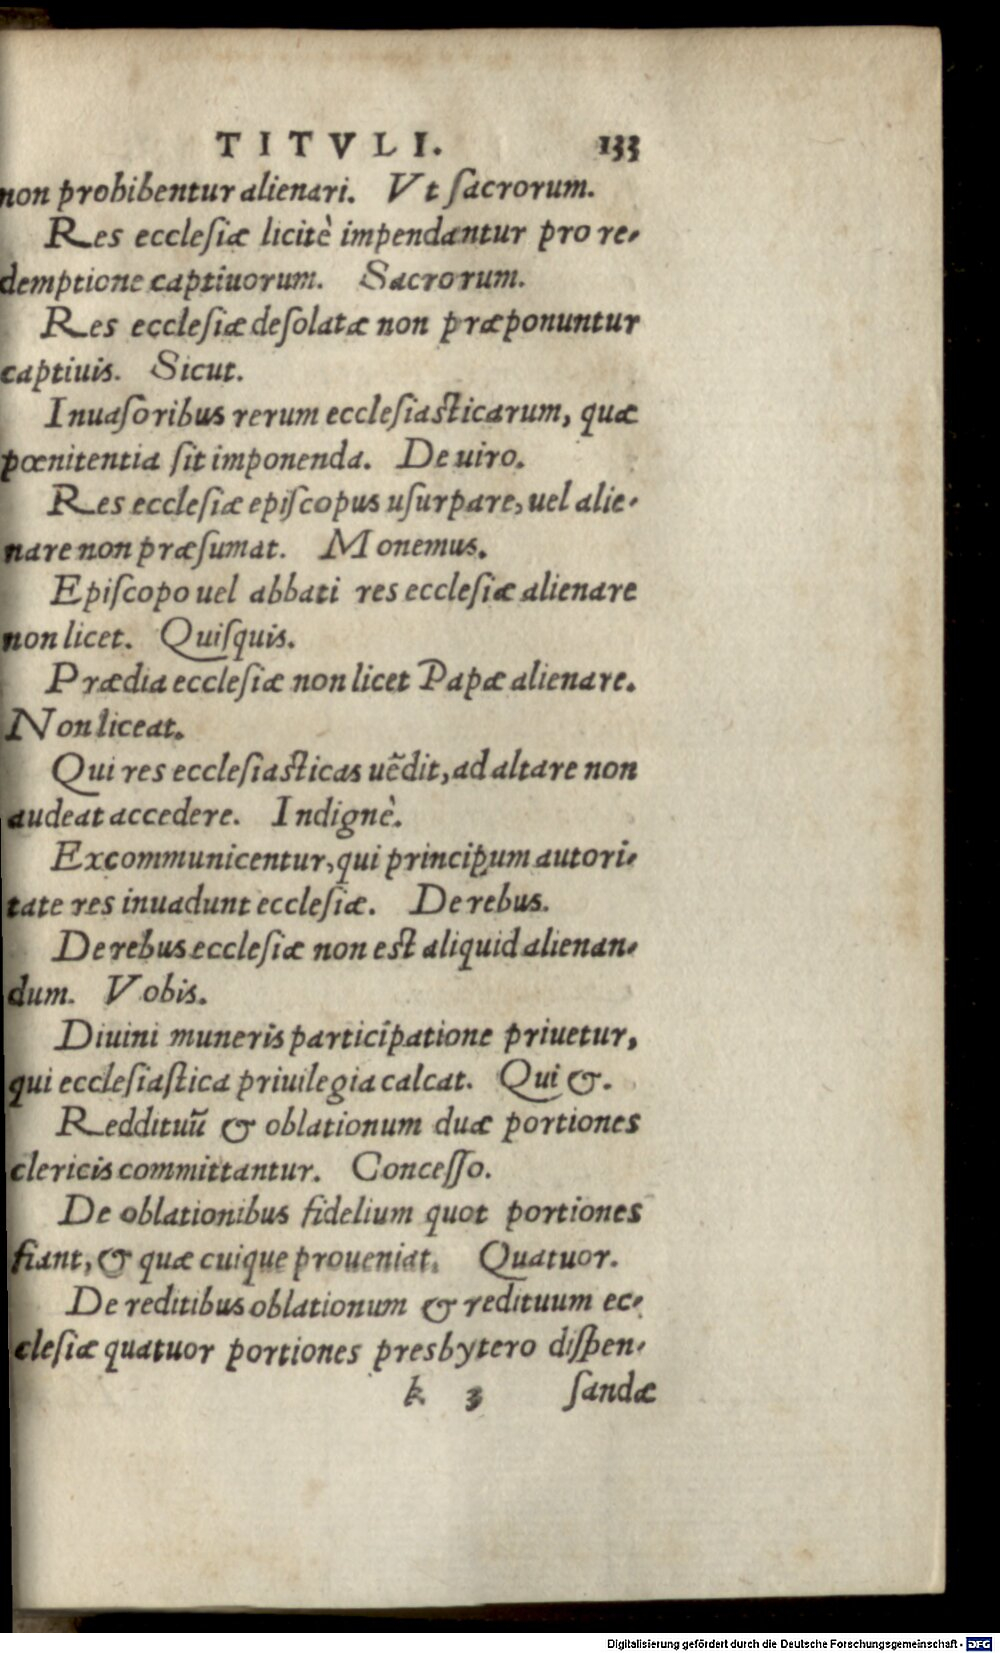 TITVLI. 133
non prohibentur alienari. Vt ſacrorum.
Res eccleſiæ licitè impendantur pro re-
demptione captiuorum. Sacrorum.
Res eccleſiæ deſolatæ non præponuntur
captiuis. Sicut.
Inuaſoribus rerum eccleſiaſticarum, quæ
pœnitentia ſit imponenda. De uiro.
Res eccleſiæ epiſcopus uſurpare, uel alie-
nare non præſumat. Monemus.
Epiſcopo uel abbati res eccleſiæ alienare
non licet. Quiſquis.
Prædia eccleſiæ non licet Papæ alienare.
Non liceat.
Qui res eccleſiaſticas uẽdit, ad altare non
audeat accedere. Indignè.
Excommunicentur, qui principum autori-
tate res inuadunt eccleſiæ. De rebus.
De rebus eccleſiæ non eſt aliquid alienan-
dum. Vobis.
Diuini muneris participatione priuetur,
qui eccleſiaſtica priuilegia calcat. Qui &.
Reddituũ & oblationum duæ portiones
clericis committantur. Conceſſo.
De oblationibus fidelium quot portiones
fiant, & quæ cuique proueniat. Quatuor.
De reditibus oblationum & redituum ec-
cleſiæ quatuor portiones presbytero diſpen-
k 3 ſandæ
Digitalisierung gefördert durch die Deutsche Forschungsgemeinschaft - DFG